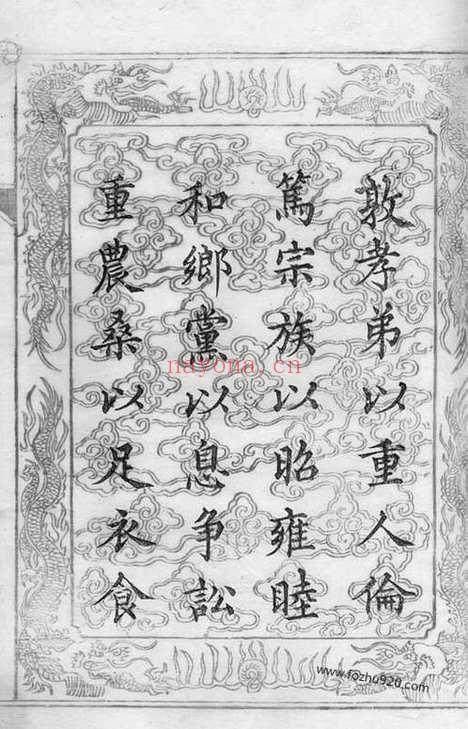 敦孝弟以重人倫
篤宗族以昭雍睦
和鄉黨以息争訟
重農桑以足衣食
nayona.cn
www.fozhu920.com